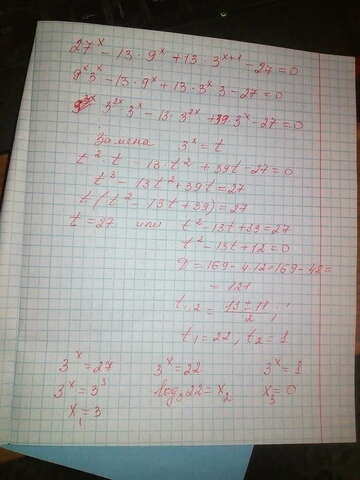 27^x - 13 · 9^x + 13 · 3^{x+1} - 27 = 0
9^x 3^x - 13 · 9^x + 13 · 3^x 3 - 27 = 0
3^{2x} 3^x - 13 · 3^{2x} + 39 · 3^x - 27 = 0
Замена 3^x = t
t^2 · t - 13 · t^2 + 39t - 27 = 0
t^3 - 13t^2 + 39t = 27
t(t^2 - 13t + 39) = 27
t = 27 или t^2 - 13t + 39 = 27
t^2 - 13t + 12 = 0
D = 169 - 4 · 12 = 169 - 48 =
= 121
t_{1,2} = (13 ± 11) / 2
t_1 = 22, t_2 = 1
3^x = 27 3^x = 22 3^x = 1
3^x = 3^3 log_3 22 = x_2 x_3 = 0
x_1 = 3